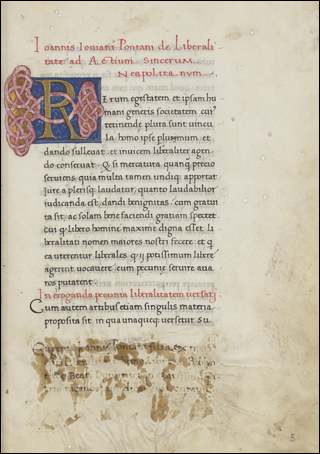 Ioannis Ioviani Pontani de Liberali
tate ad Actium Sincerum
Neapolitanum
R
E rum egestatem et ipsam hu
mani generis societatem cur
retinende plura sunt vincu
la homo ipse plurimum et
dando sullevat et invicem liberaliter agen
do conservat Q si mercatura quanq̄ precio
serviens quia multa tamen undiq apportat
Iure a plerisq laudatur quanto laudabilior
iudicanda est dandi benignitas cum gratui
ta sit ac solam bene faciendi gratiam spectet
cui q libero homine maxime digna esset li
beralitati nomen maiores nostri fecere et q
ea uterentur liberales q ij potissimum libere
agerent vocavere cum pecunie servire avia
ros putarent
In eroganda pecunia liberalitatem versarj
Cum autem artibus etiam singulis materia
proposita sit in qua unaqueq versetur su
5